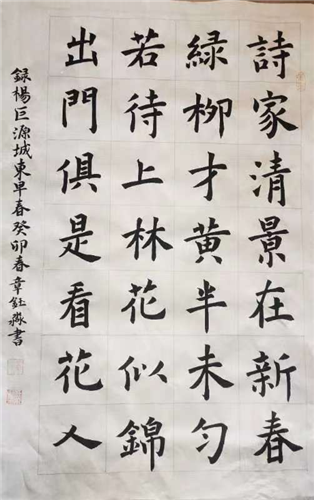 詩家清景在新春
綠柳才黃半未勻
若待上林花似錦
出門俱是看花人
録楊巨源城東早春癸卯春章鈺淼書